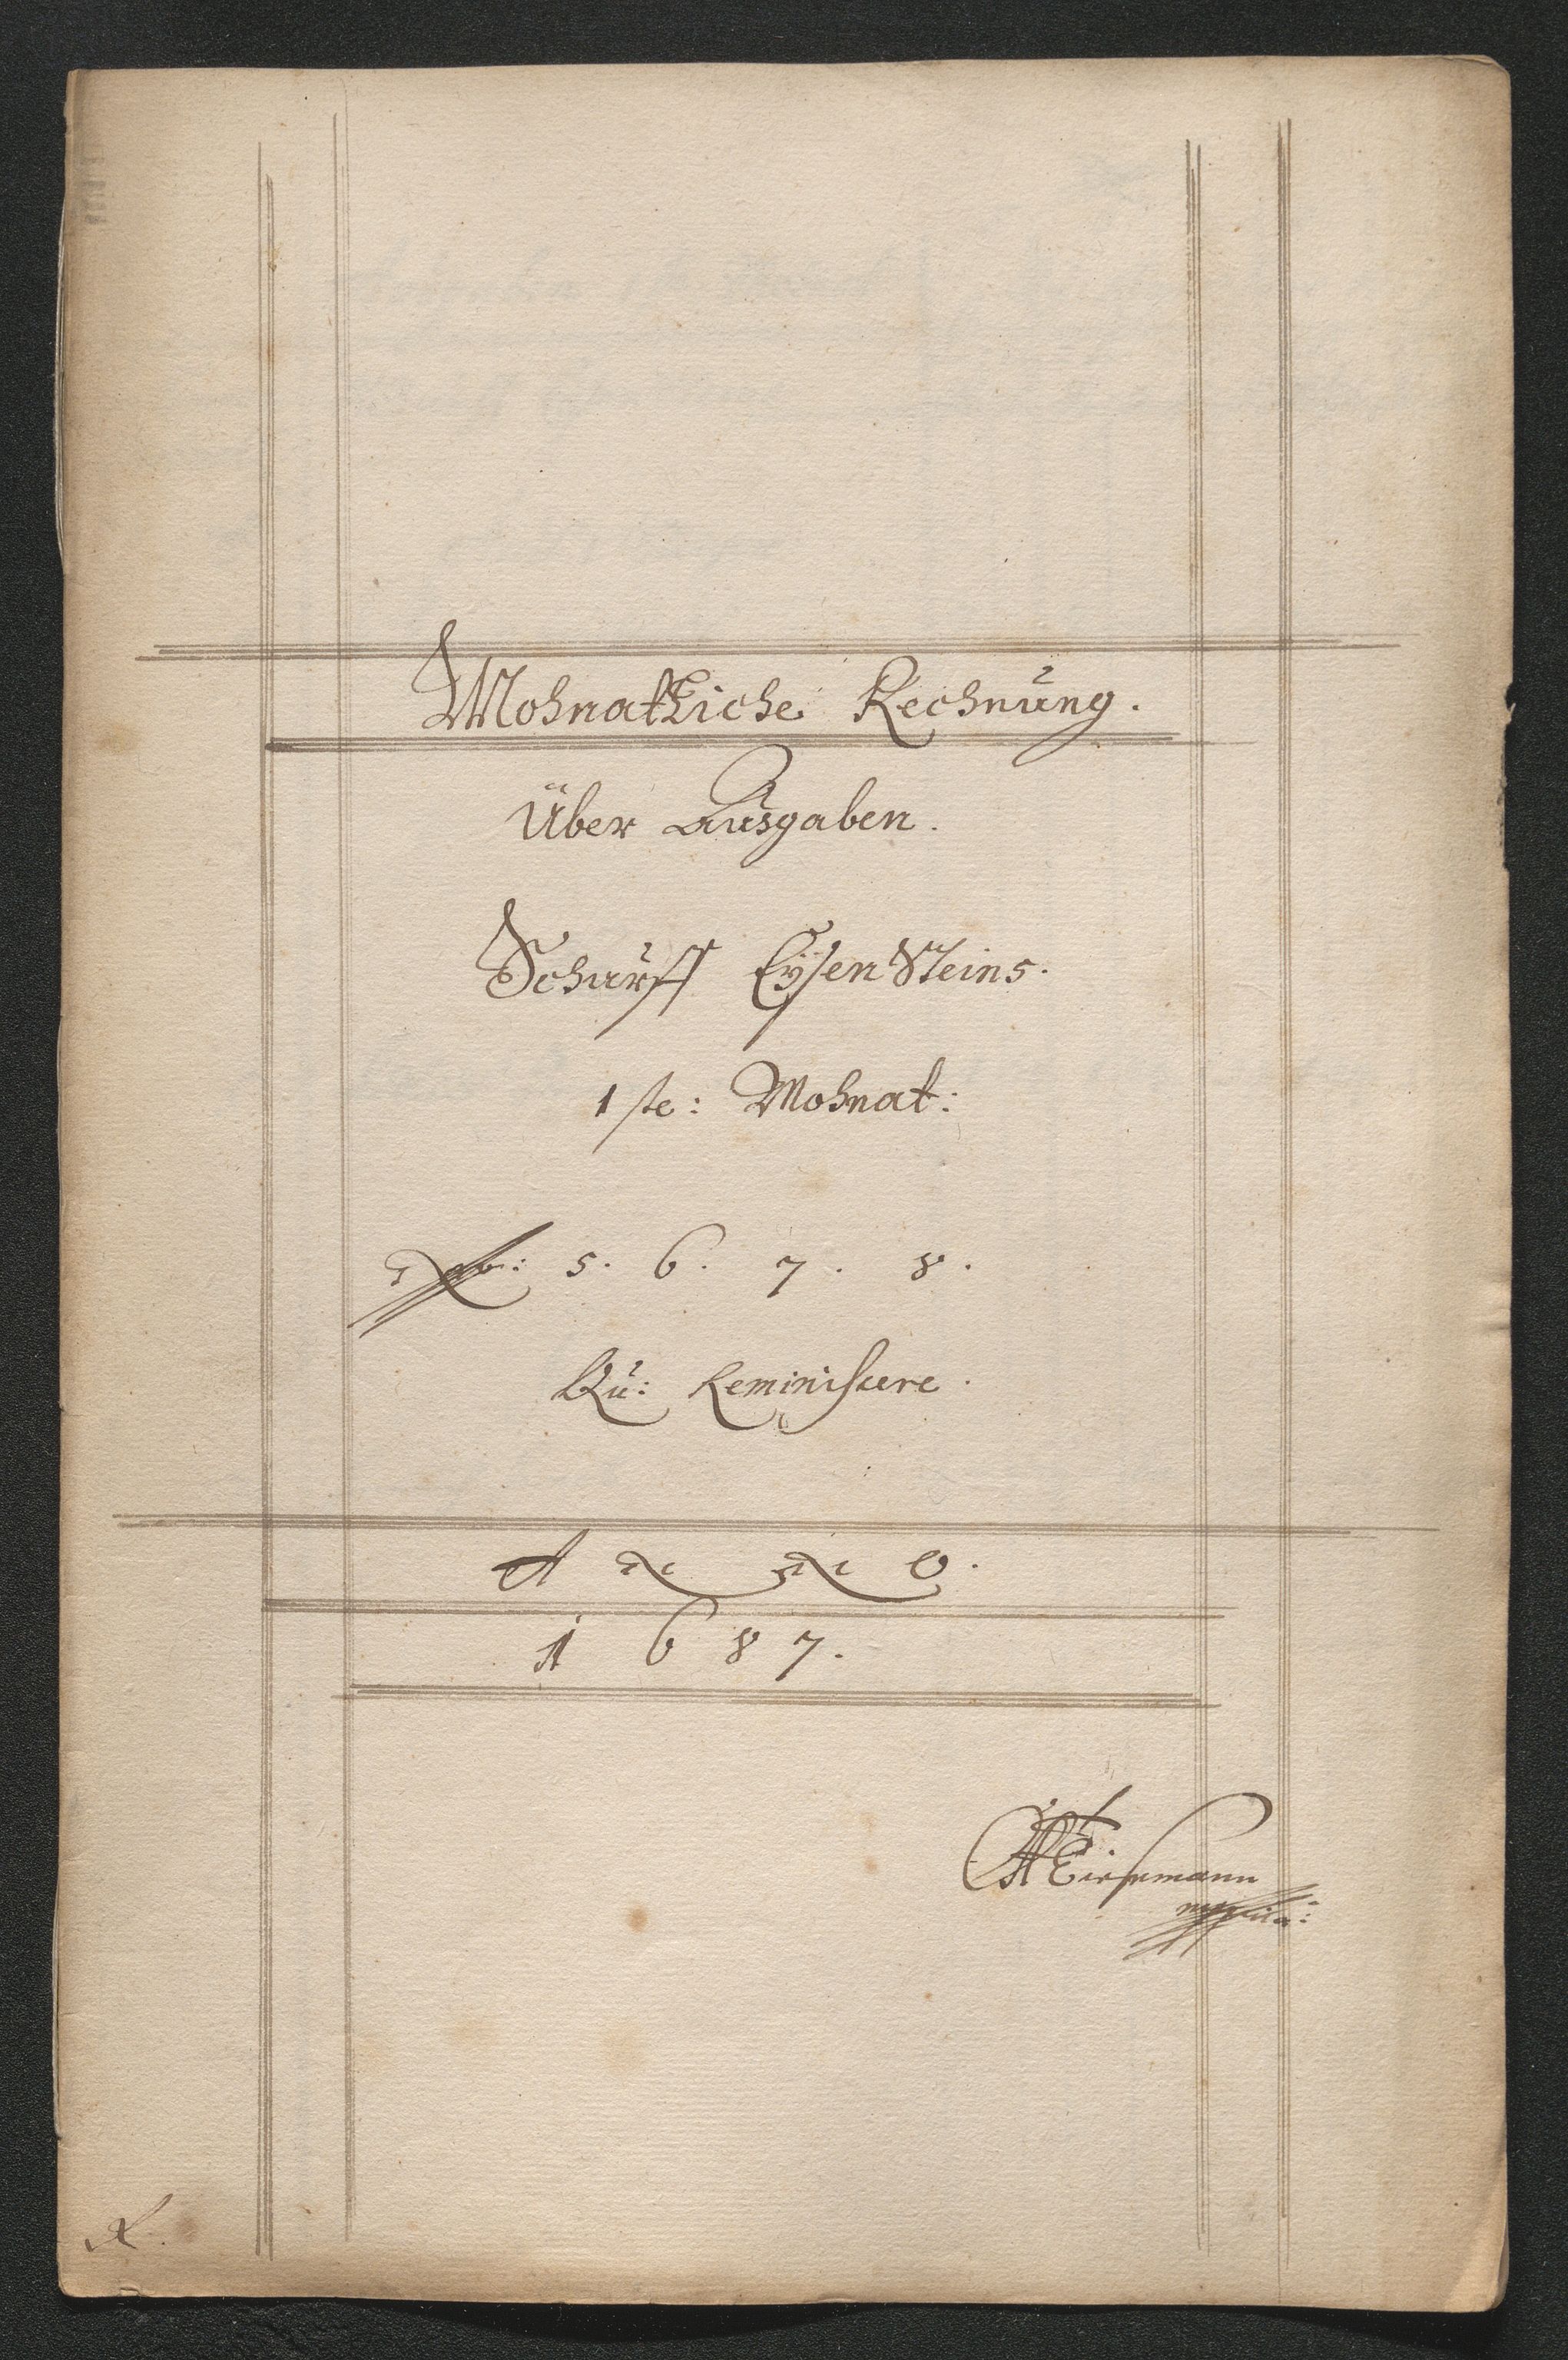 Mohnatliche Rechnung.
Über Ausgaben.
Scharff Eysen Steins.
1 ste: Mohnat:
5. 6. 7. 8.
Qu: Reminiscere.
A N N O.
1 6 8 7.